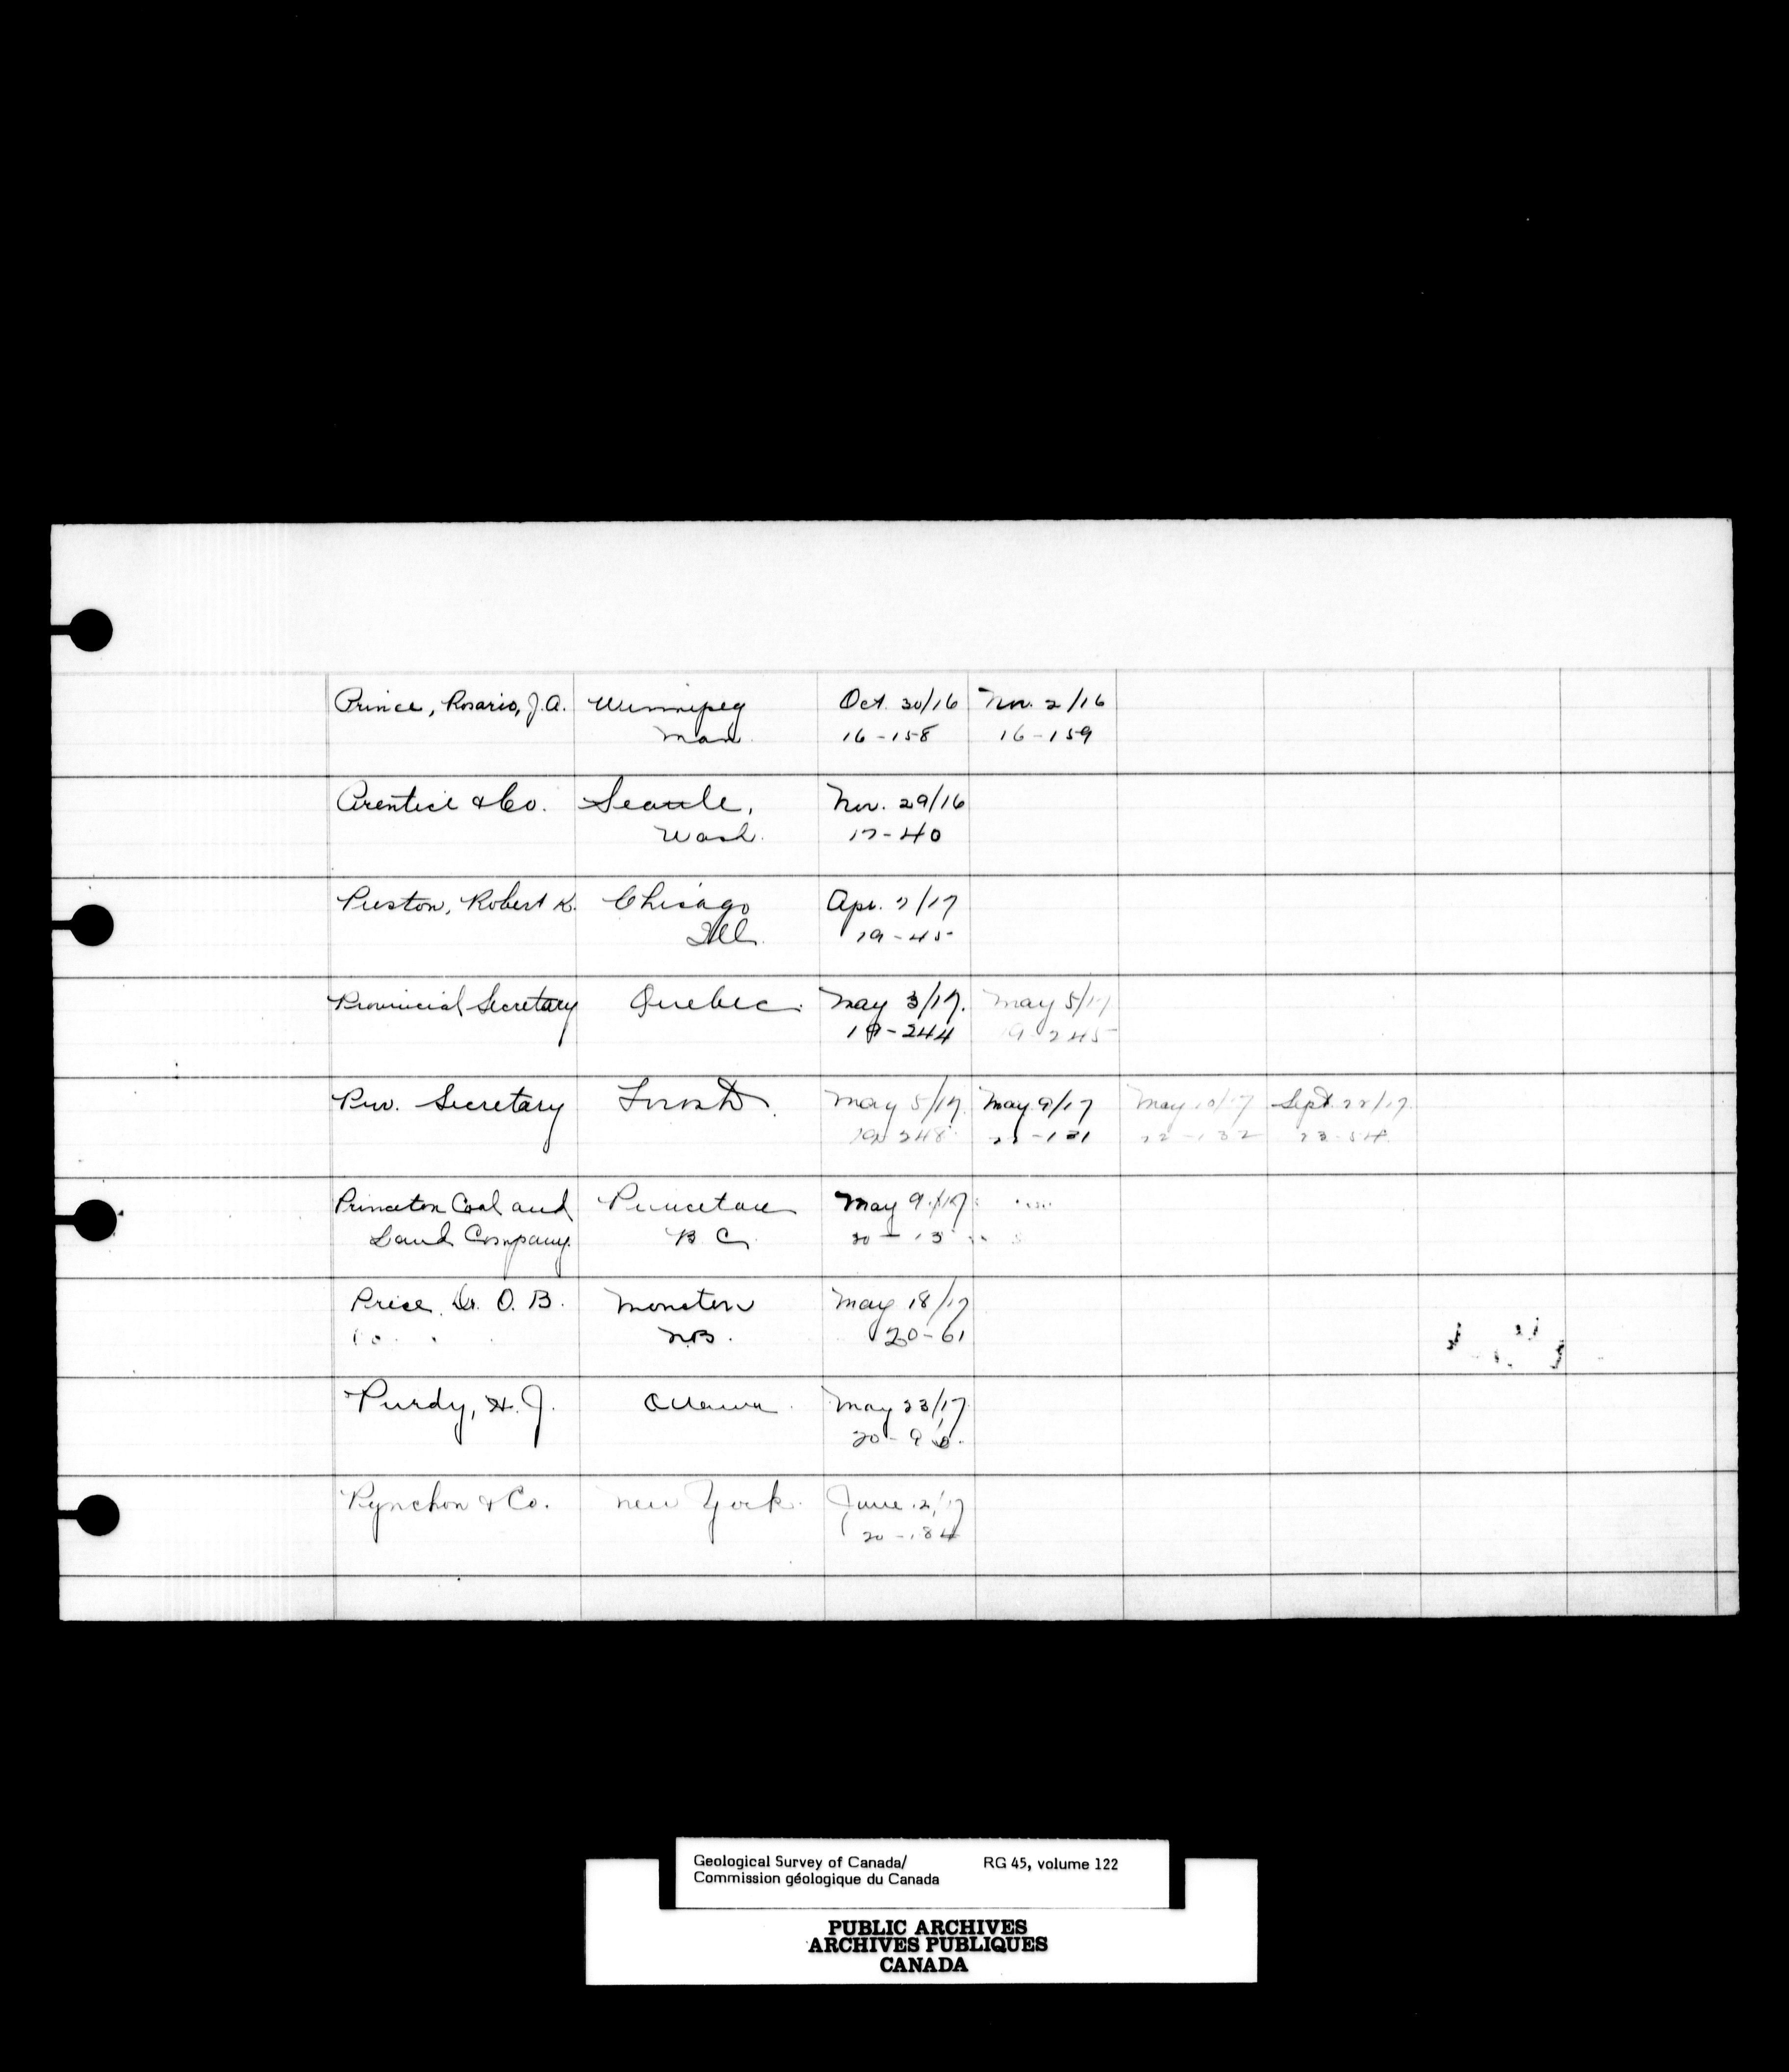 Prince, Rosario, J.A. Winnipeg Oct. 30/16 Nov. 2/16
Man. 16-158 16-159
Prentice & Co. Seattle, Nov. 29/16
Wash. 17-40
Preston, Robert K. Chicago Apr. 7/17
Ill. 19-45
Provincial Secretary Quebec. May 3/17. May 5/17
19-244 19-245
Prov. Secretary Toronto. May 5/17. May 9/17 May 10/17 Sept. 22/17.
19-248 22-131 22-132 23-54.
Princeton Coal and Princeton May 9/17
Land Company. B C 20-13
Price. Dr. O. B. Moncton May 18/17
N.B. 20-61
Purdy, H. J. Ottawa. May 23/17
20-90.
Pynchon & Co. New York. June 12/17
20-184
Geological Survey of Canada/ RG 45, volume 122
Commission géologique du Canada
PUBLIC ARCHIVES
ARCHIVES PUBLIQUES
CANADA